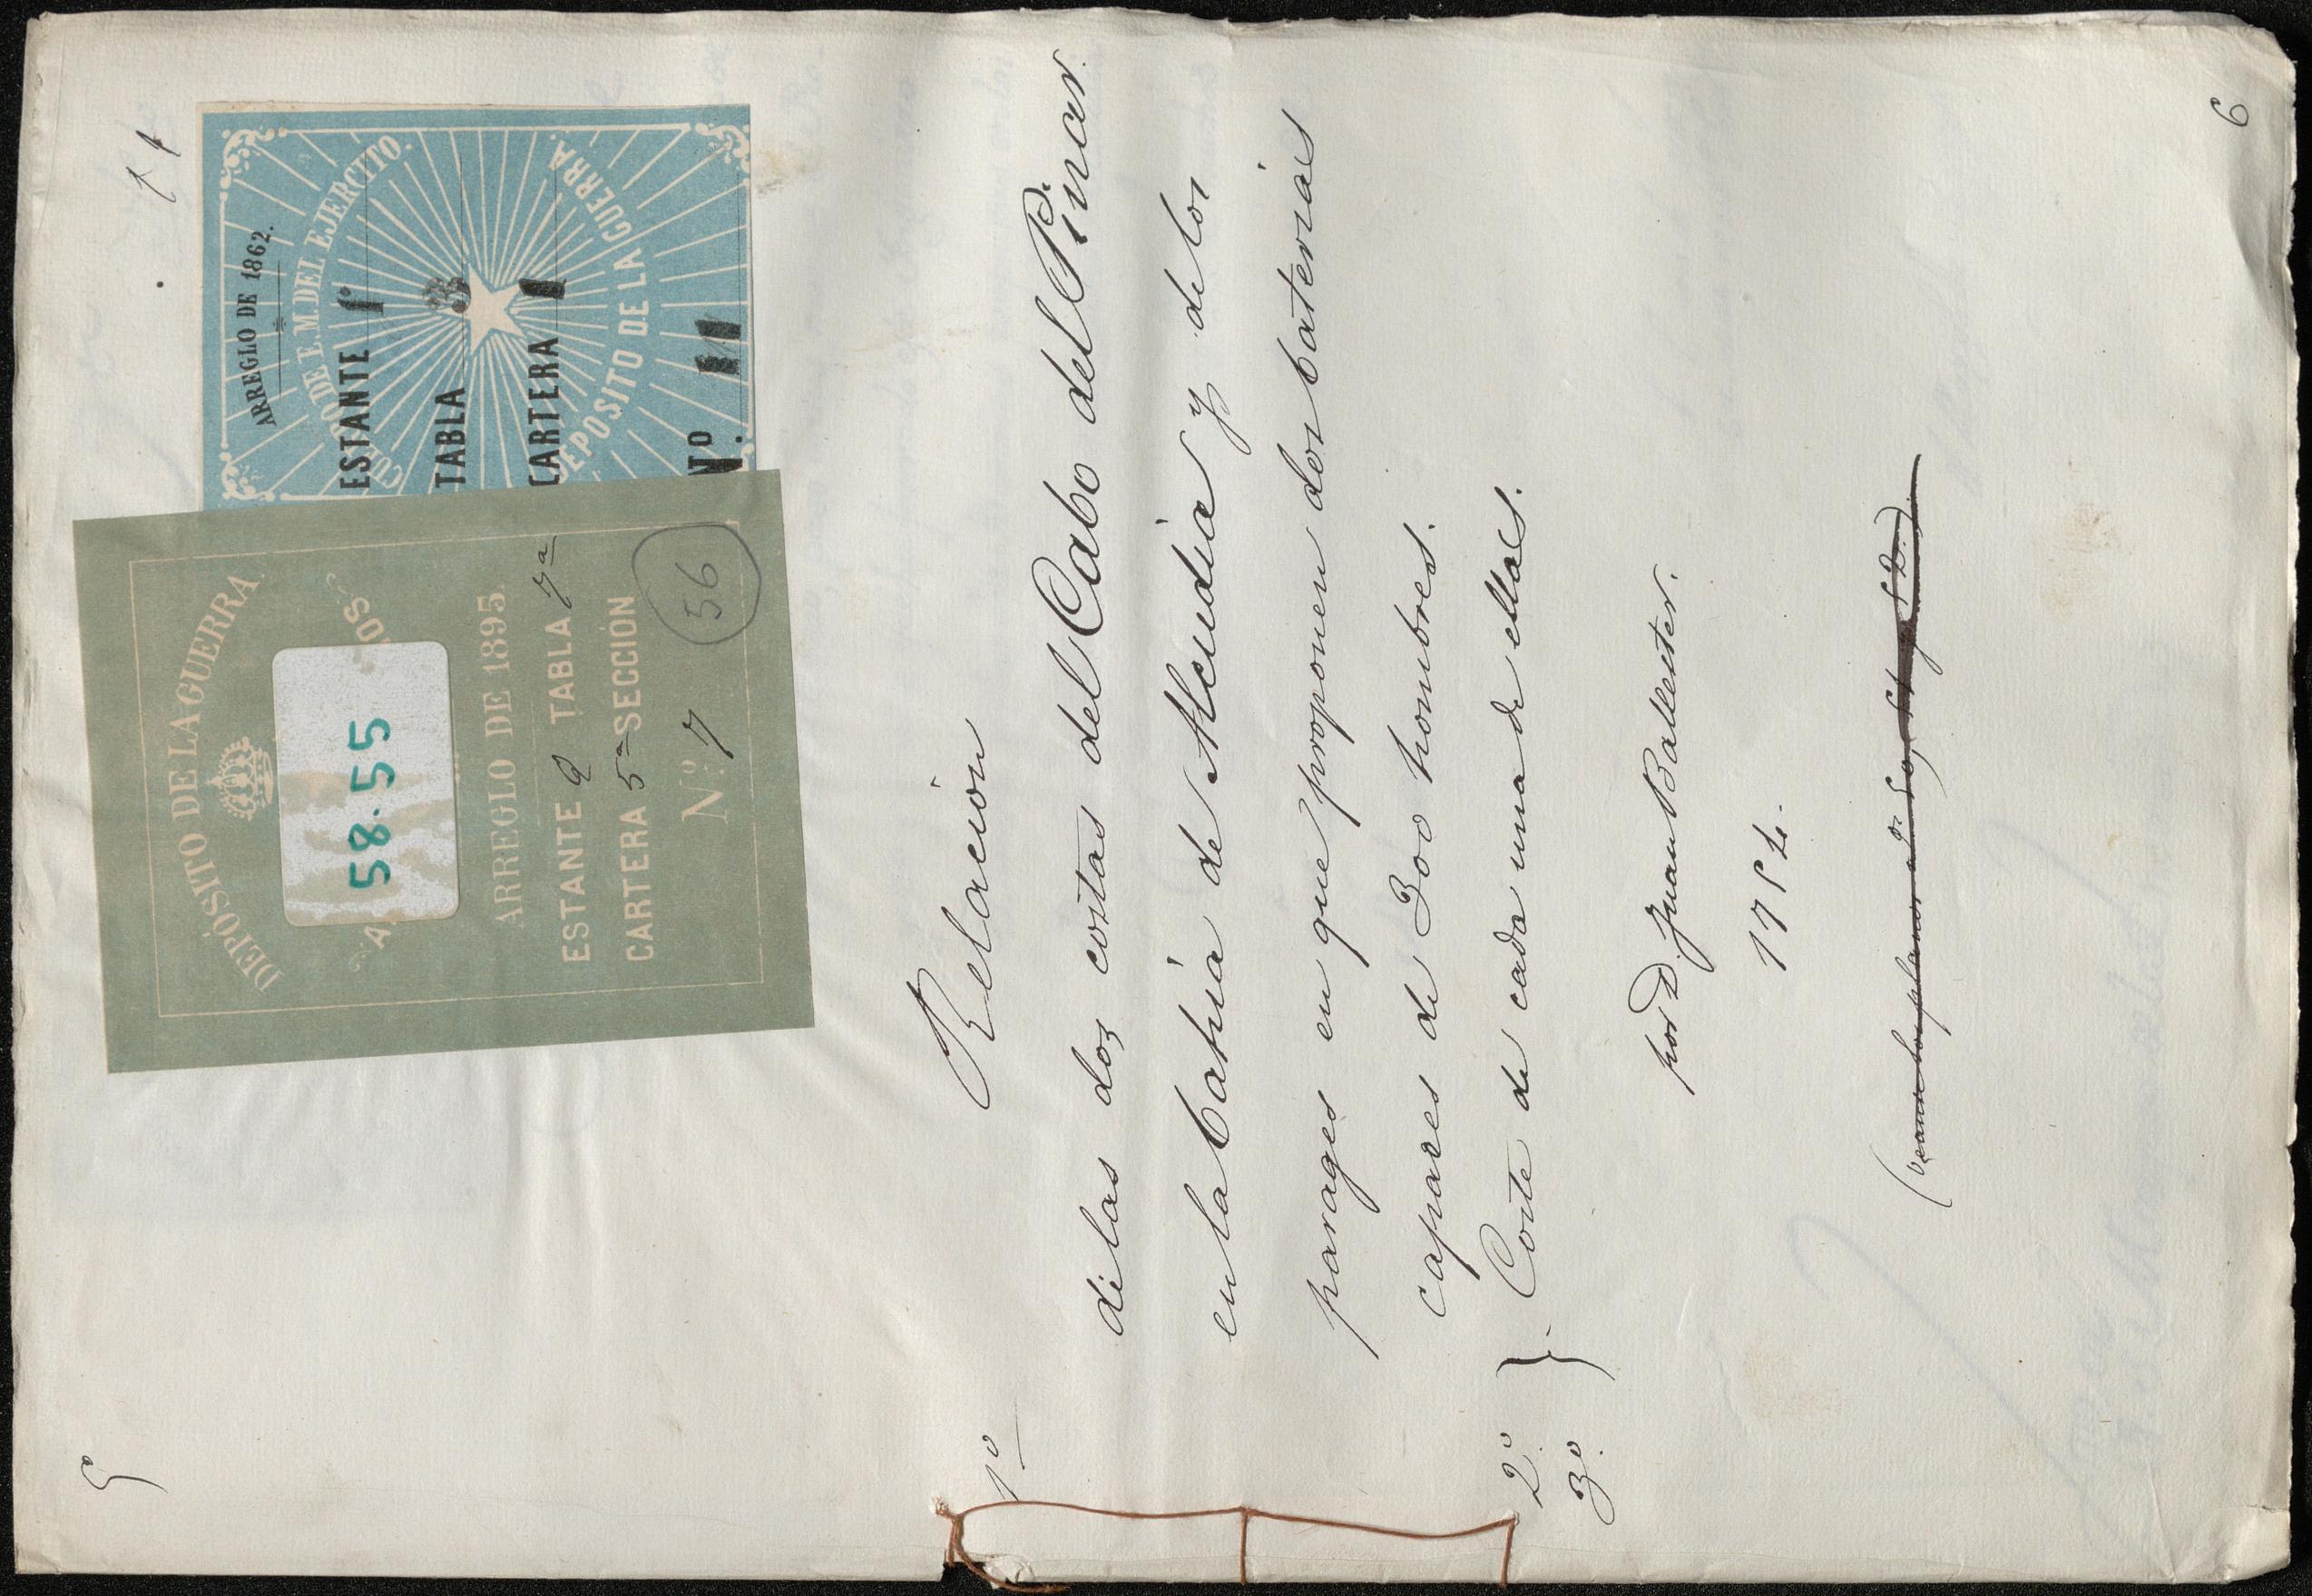 5ª
11
ARREGLO DE 1862.
CUERPO DE E. M. DEL EJERCITO.
ESTANTE 1º
TABLA 3
CARTERA 1
DEPOSITO DE LA GUERRA.
Nº. 11
DEPÓSITO DE LA GUERRA.
58-55
ARREGLO DE 1895.
ESTANTE 2 TABLA 7ª
CARTERA 5ª SECCIÓN
Nº 7
56
1º Relacion
de las dos costas del Cabo del Pinar
en la bahia de Alcudia y de los
parages en que proponen dos baterias
capaces de 300 hombres.
2º.
3º. } Corte de cada una de ellas.
por D. Juan Ballester.
(vean los planos
6